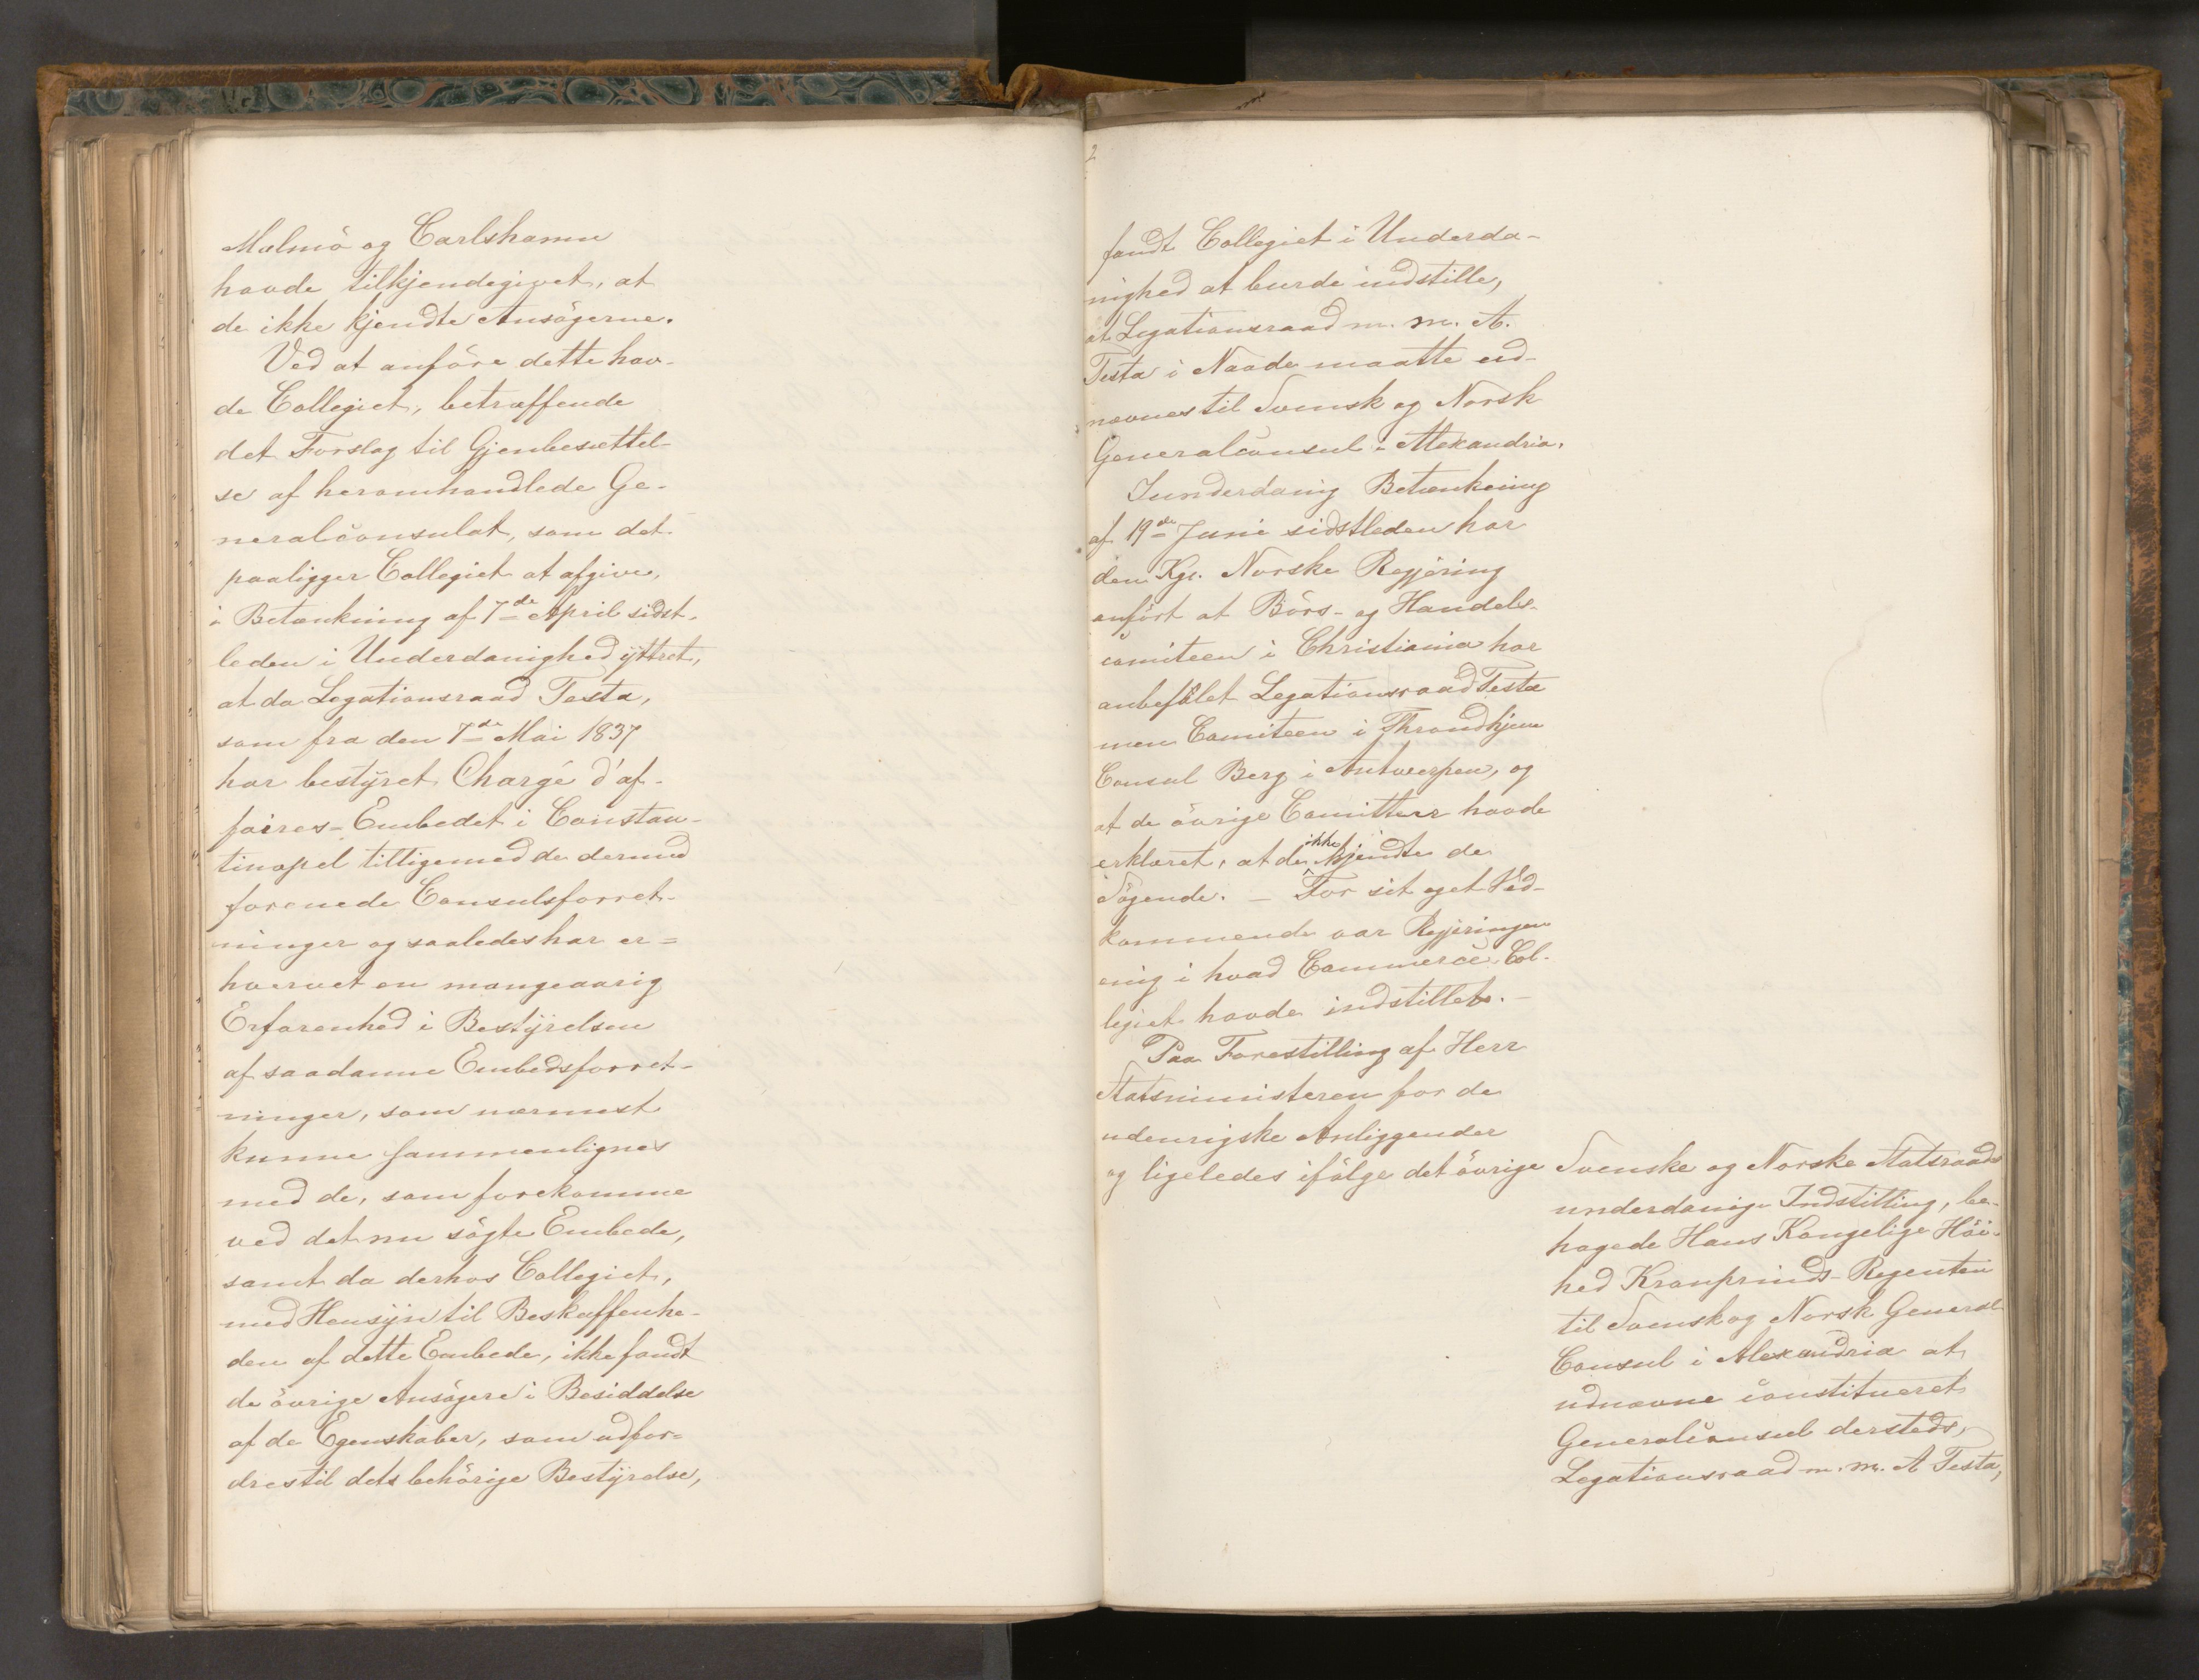 Malmö og Carlshamn
havde tilkjendegivet, at
de ikke kjendte Ansögerne.
Ved at anföre dette hav-
de Collegiet, betræffende
det Forslag til Gjenbesættel-
se af heromhandlede Ge-
neralconsulat, som det
paaligger Collegiet at afgive,
i Betænkning af 7de April sidst-
leden i Underdanighed yttret,
at da Legationsraad Testa,
som fra den 7de Mai 1837
har bestyret Chargé d'af-
faires-Embedet i Constan-
tinopel tilligemed de dermed
forenede Consulsforret-
ninger og saaledes har er=
hvervet en mangeaarig
Erfarenhed i Bestyrelsen
af saadanne Embedsforret-
ninger, som nærmest
kunne sammenlignes
med de, som forekomme
ved det nu sögte Embede,
samt da derhos Collegiet,
med Hensyn til Beskaffenhe-
den af dette Embede, ikke fandt
de övrige Ansögere i Besiddelse
af de Egenskaber, som udfor=
dres til dets behörige Bestyrelse,
2
fandt Collegiet i Underda-
nighed at burde indstille,
at Legationsraad m. m. A.
Testa i Naade maatte ud-
nævnes til Svensk og Norsk
Generalconsul i Alexandria.
I underdanig Betænkning
af 19de Juni sidstleden har
den Kgl. Norske Regjering
anfört at Börs- og Handels-
comiteen i Christiania har
anbefalet Legationsraad Testa
men Comiteen i Throndhjem
Consul Berg i Antwerpen, og
at de övrige Comitteer havde
erklæret, at de ikke kjendte de
Sögende. - For sit eget Ved-
kommende var Regjeringen
enig i hvad Commerce Col-
legiet havde indstillet. -
Paa Forestilling af Herr
Statsministeren for de
udenrigske Anliggender
og ligeledes ifölge det övrige Svenske og Norske Statsraads
underdanige Indstilling, be-
hagede Hans Kongelige Höi-
hed Kronprinds-Regenten
til Svensk og Norsk General
Consul i Alexandria at
udnævne constitueret
Generalconsul dersteds,
Legationsraad m. m. A Testa,